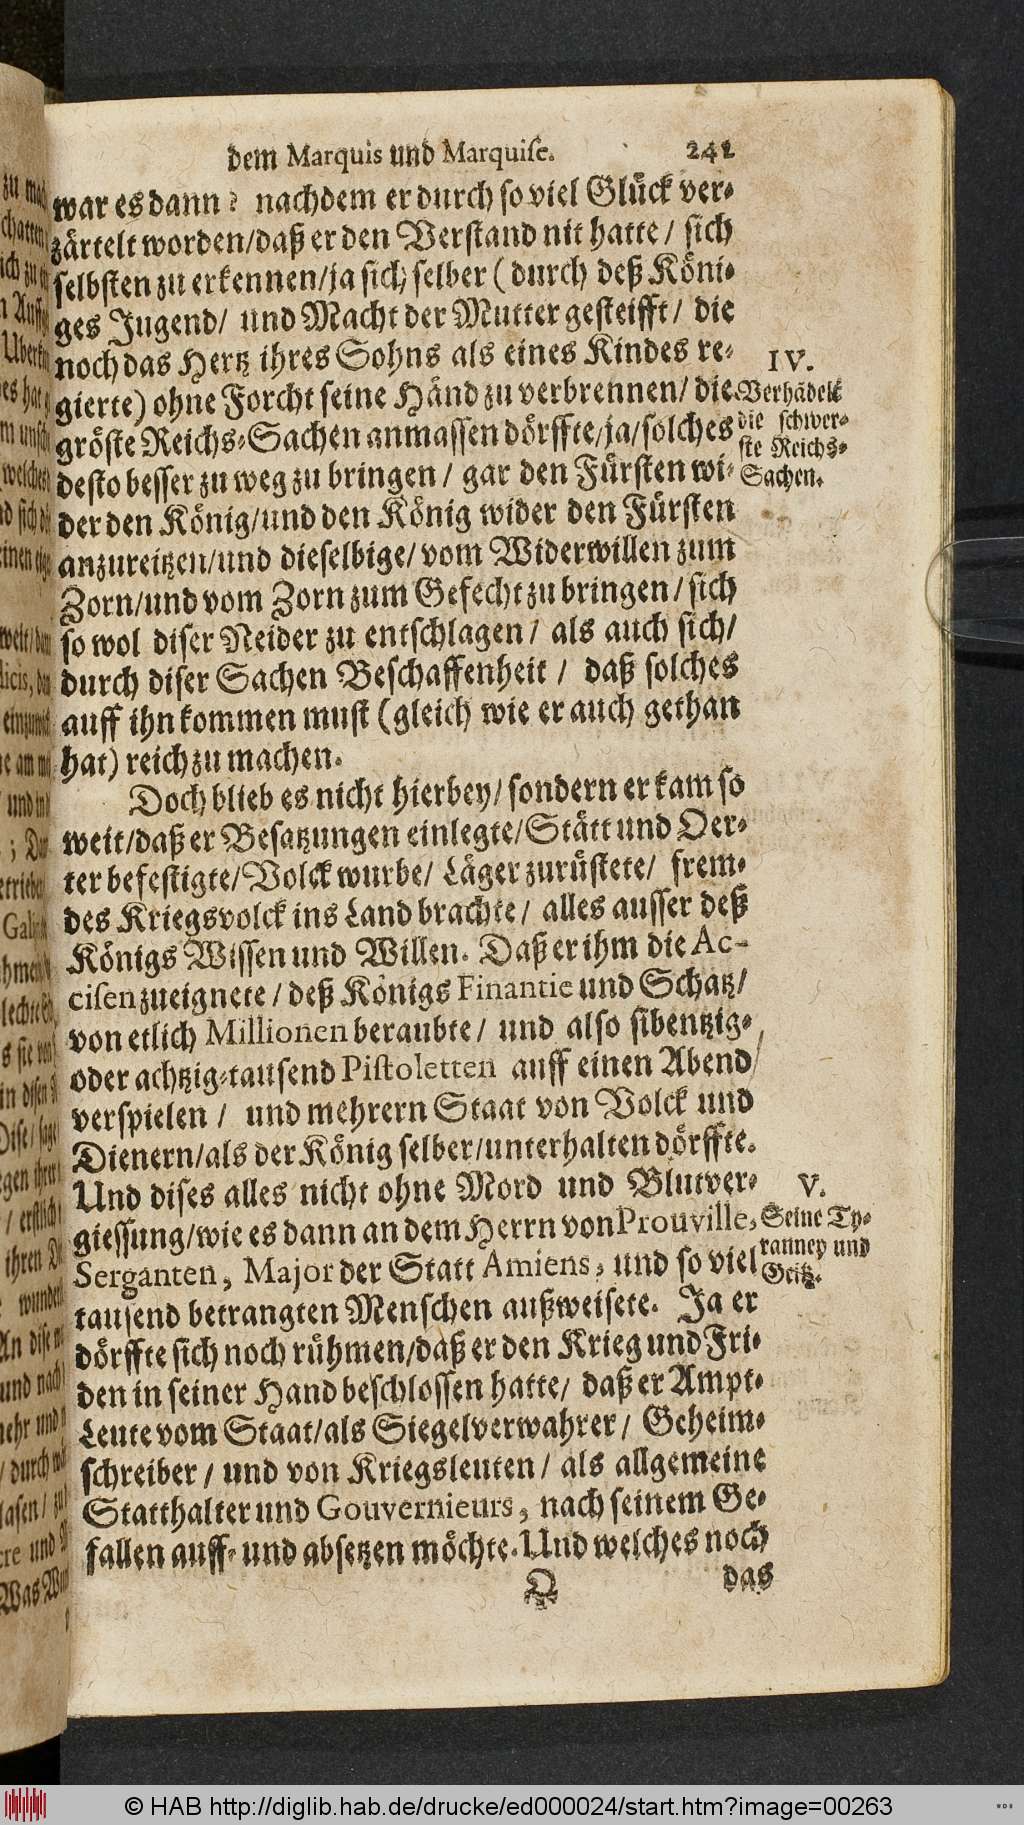 dem Marquis und Marquise. 241
war es dann? nachdem er durch so viel Glück ver-
zärtelt worden/daß er den Verstand nit hatte/ sich
selbsten zu erkennen/ja sich selber (durch deß Köni-
ges Jugend/ und Macht der Mutter gesteifft/ die
noch das Hertz ihres Sohns als eines Kindes re-
gierte) ohne Forcht seine Händ zu verbrennen/ die
gröste Reichs-Sachen anmassen dörffte/ja/solches
desto besser zu weg zu bringen/ gar den Fürsten wi-
der den König/und den König wider den Fürsten
anzureitzen/und dieselbige/ vom Widerwillen zum
Zorn/und vom Zorn zum Gefecht zu bringen/ sich
so wol diser Neider zu entschlagen/ als auch sich/
durch diser Sachen Beschaffenheit/ daß solches
auff ihn kommen must (gleich wie er auch gethan
hat) reich zu machen.
IV.
Verhädelt
die schwer-
ste Reichs-
Sachen.
Doch blieb es nicht hierbey/sondern er kam so
weit/daß er Besatzungen einlegte/Stätt und Oer-
ter befestigte/Volck wurbe/ Läger zurüstete/ frem-
des Kriegsvolck ins Land brachte/ alles ausser deß
Königs Wissen und Willen. Daß er ihm die Ac-
cisen zueignete/ deß Königs Finantie und Schatz/
von etlich Millionen beraubte/ und also sibentzig-
oder achtzig-tausend Pistoletten auff einen Abend/
verspielen/ und mehrern Staat von Volck und
Dienern/als der König selber/unterhalten dörffte.
Und dises alles nicht ohne Mord und Blutver-
giessung/wie es dann an dem Herrn von Prouville,
Serganten, Major der Statt Amiens, und so viel
tausend betrangten Menschen außweisete. Ja er
dörffte sich noch rühmen/daß er den Krieg und Fri-
den in seiner Hand beschlossen hatte/ daß er Ampt-
Leute vom Staat/als Siegelverwahrer/ Geheim-
schreiber/ und von Kriegsleuten/ als allgemeine
Statthalter und Gouvernieurs, nach seinem Ge-
fallen auff- und absetzen möchte. Und welches noch
V.
Seine Ty-
ranney und
Geitz.
Q das
© HAB http://diglib.hab.de/drucke/ed000024/start.htm?image=00263